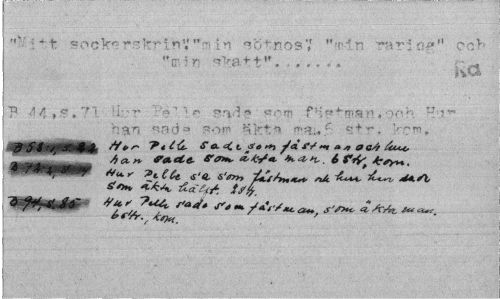 "Mitt sockerskrin","min sötnos", "min raring" och
"min skatt".......
Ra
B 44,s.71 Hur Pelle sade som fästman.och Hur
han sade som äkta ma.6 str. kom.
Hur Pelle sade som fästman och hur
han sade som äkta man. 6 str, kom.
Hur Pelle sa som fästman och hur han
som äkta hälft. 2 str.
B 94, s. 85 Hur Pelle sade som fästman, som äkta man.
6 str., kom.